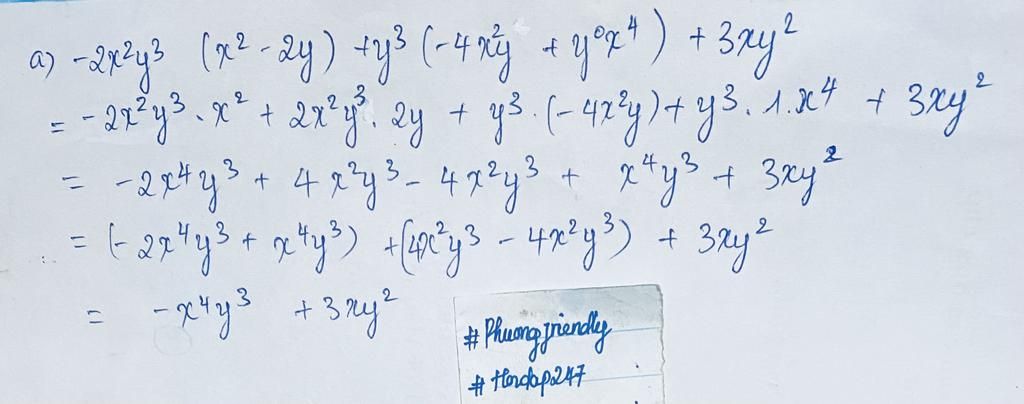 a) -2x²y³ (x² - 2y) + y³ (-4x²y + y⁰x⁴) + 3xy²
= -2x²y³ . x² + 2x²y³ . 2y + y³ . (-4x²y) + y³ . 1 . x⁴ + 3xy²
= -2x⁴y³ + 4x²y³ - 4x²y³ + x⁴y³ + 3xy²
= (-2x⁴y³ + x⁴y³) + (4x²y³ - 4x²y³) + 3xy²
= -x⁴y³ + 3xy²
# Phuongfriendly
# Hoidap247